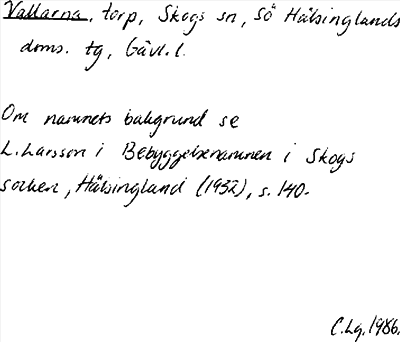 Vallarna, torp, Skogs sn, Sö Hälsinglands
doms. tg, Gävl. l.
Om namnets bakgrund se
L. Larsson i Bebyggelsenamnen i Skogs
socken, Hälsingland (1932), s. 140.
C.Lg. 1986.